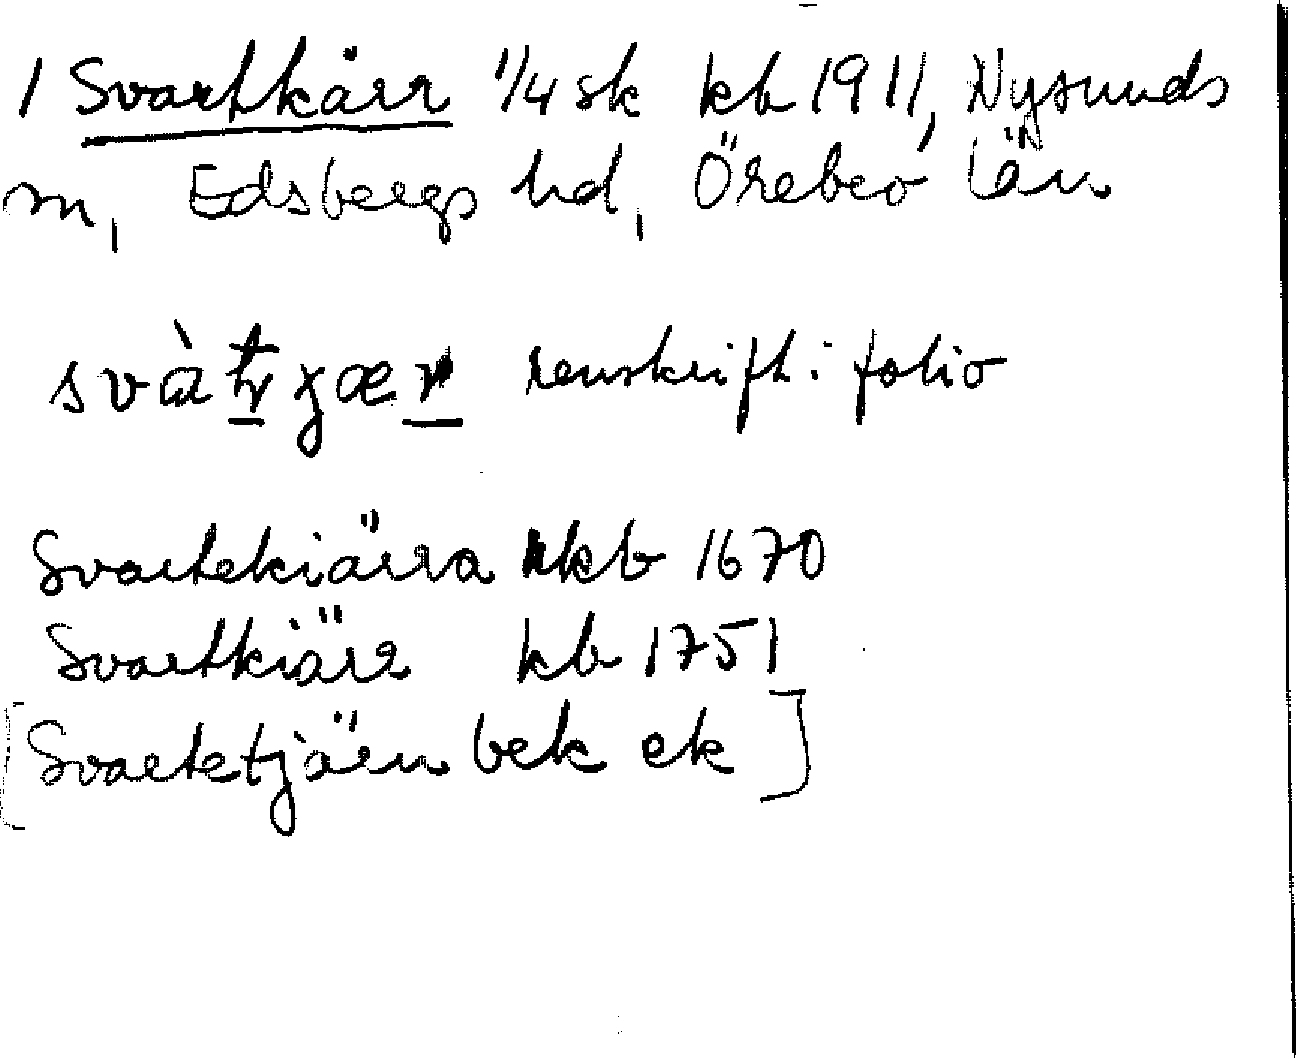 1 Svartkärr 1/4 sk kb 1911, Nysunds
sn, Edsbergs hd, Örebro län
renskrift i folio
Svartekiärra kb 1670
Svartkiärr kb 1751
[Svartetjärn bek ek]